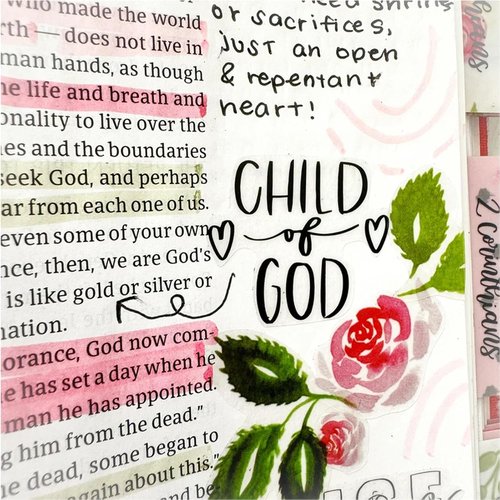 who made the world
— does not live in
human hands, as though
life and breath and
to live over the
and the boundaries
seek God, and perhaps
far from each one of us.
even some of your own
then, we are God's
is like gold or silver or
God now com-
he has set a day when he
man he has appointed.
him from the dead."
dead, some began to
again about this."
or sacrifices,
just an open
& repentant
heart!
CHILD
of
GOD
2 Corinthians